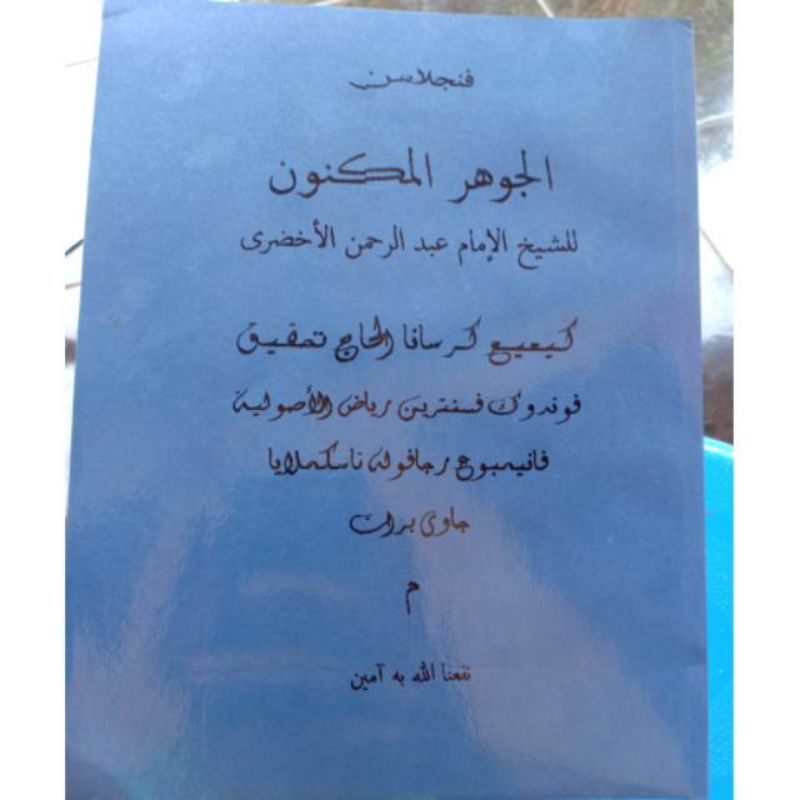 فنجلاسن
الجوهر المكنون
للشيخ الإمام عبد الرحمن الأخضرى
كيعيع كرسافا الحاج تمفيق
فوندوك فسنترين رياض الأصولية
فانيمبوع رجافوله تاسكملايا
جاوى برات
م
نفعنا الله به آمين